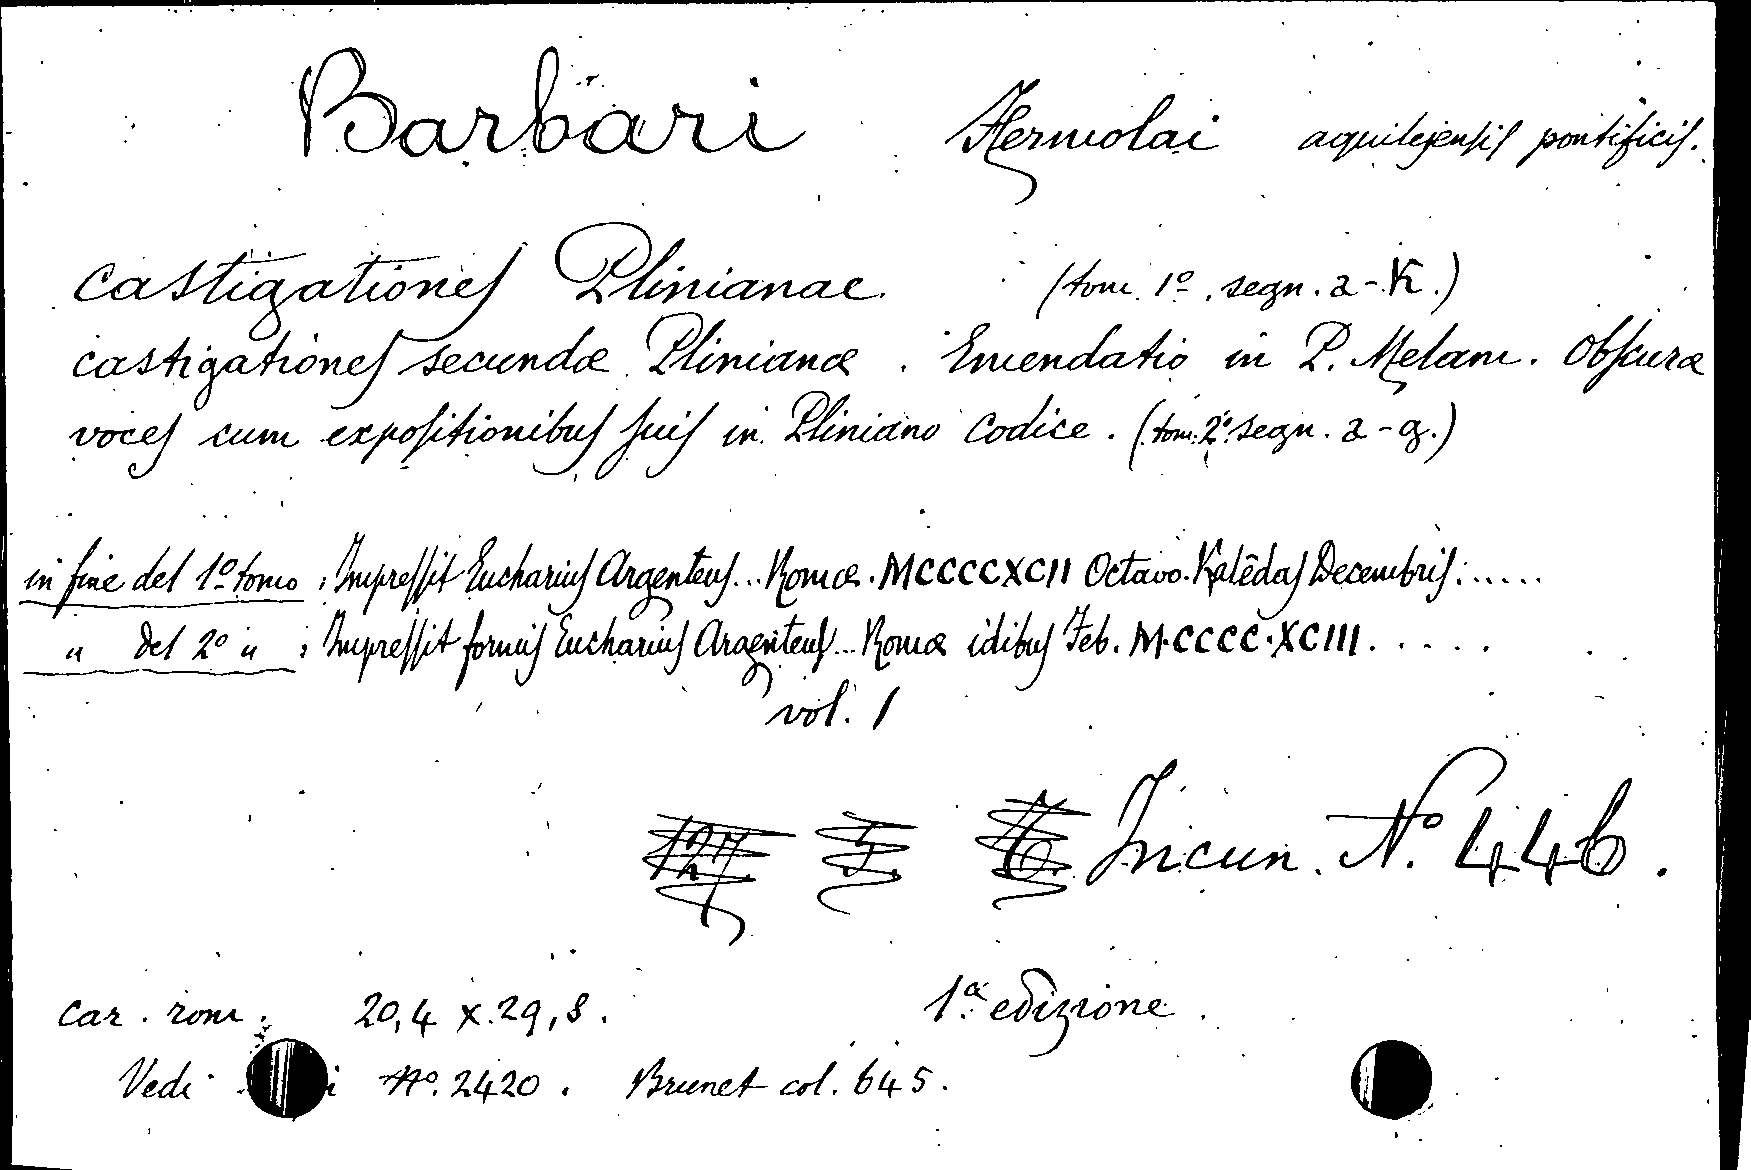 Barbari Hermolai aquilejensis pontificis.
castigationes Plinianae. (tom. 1º. segn. a-K.)
castigationes secundæ Plinianæ. Emendatio in P. Melam. Obscuræ
voces cum expositionibus suis in Pliniano Codice. (tom. 2º. segn. a-g.)
in fine del 1º tomo: Impressit Eucharius Argenteus... Romæ. MCCCCXCII Octavo. Kalēdas Decembris:.....
" del 2º ": Impressit formis Eucharius Argenteus... Romæ idibus Feb. M.CCCC.XCIII.....
vol. 1
127. 5. 6. Incun. Nº. 446.
Car. rom. 20,4 x 29,8. 1ª edizione.
Vedi Nº. 2420. Brunet col. 645.